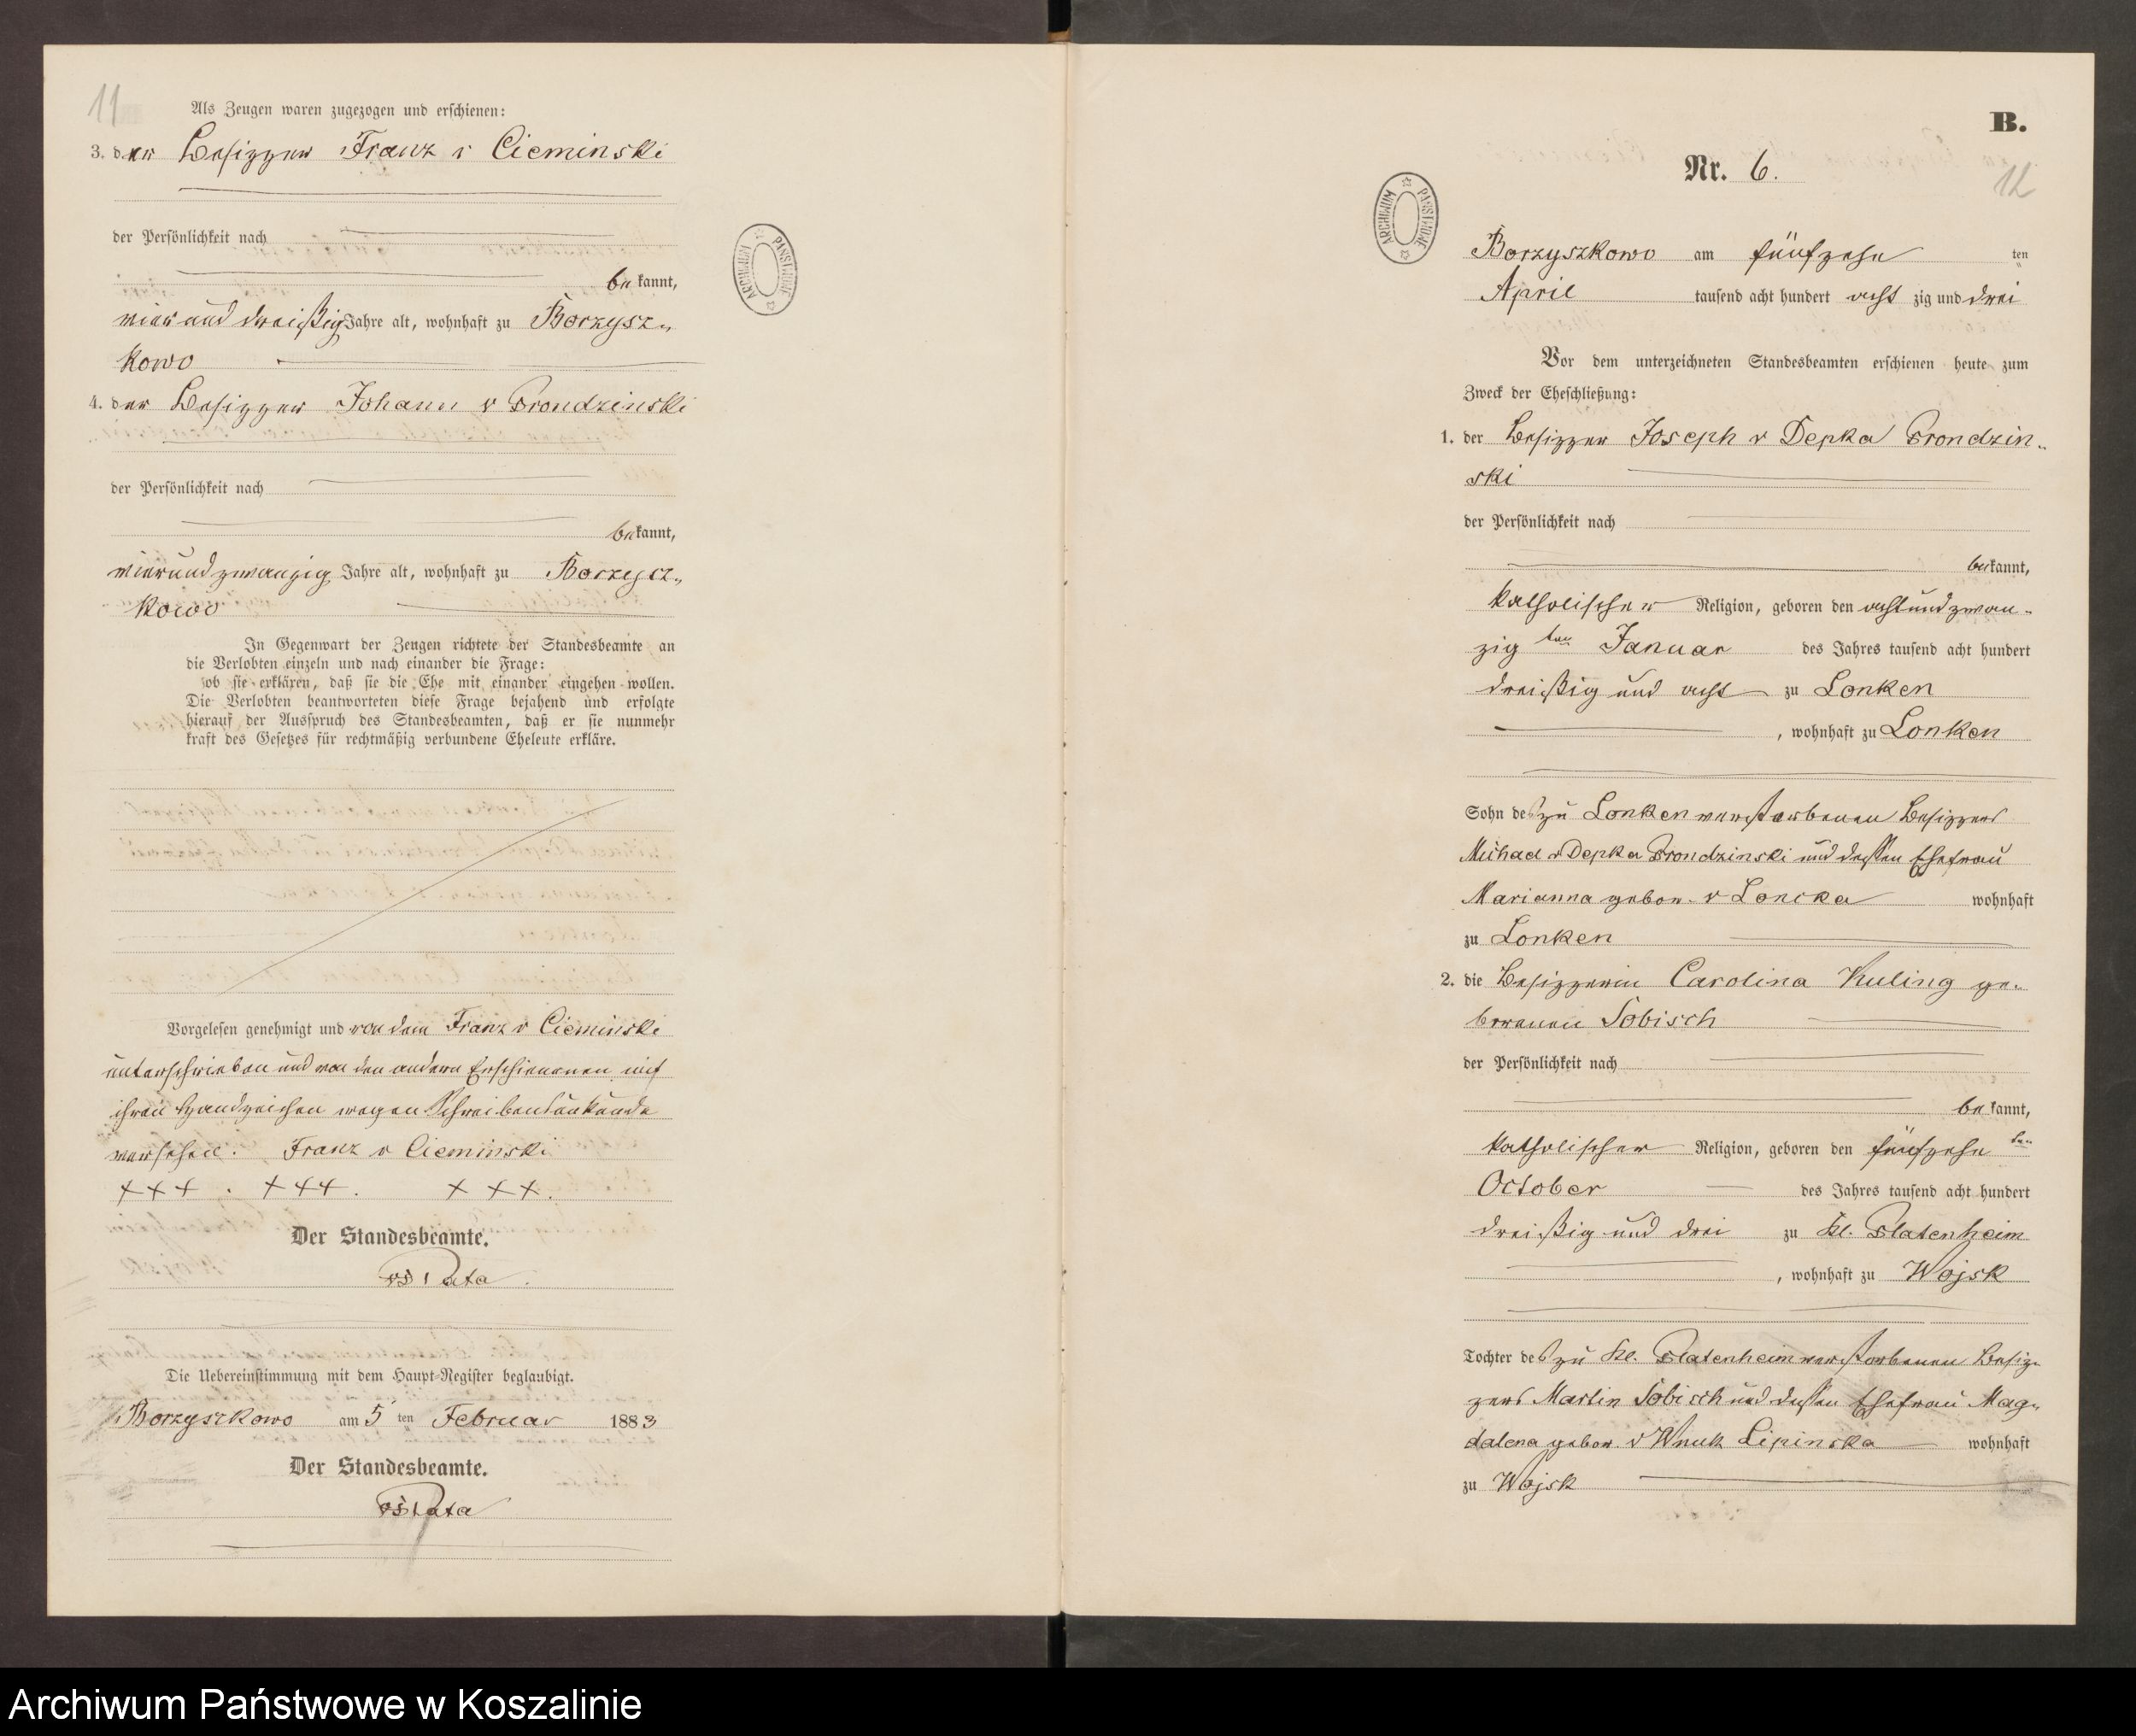 11
Als Zeugen waren zugezogen und erschienen:
3. der Besitzer Franz v Cieminski
der Persönlichkeit nach
bekannt,
vier und dreißig Jahre alt, wohnhaft zu Borzysz-
kowo
4. der Besitzer Johann v Prondzinski
der Persönlichkeit nach
bekannt,
vierundzwanzig Jahre alt, wohnhaft zu Borzysz-
kowo
In Gegenwart der Zeugen richtete der Standesbeamte an
die Verlobten einzeln und nach einander die Frage:
ob sie erklären, daß sie die Ehe mit einander eingehen wollen.
Die Verlobten beantworteten diese Frage bejahend und erfolgte
hierauf der Ausspruch des Standesbeamten, daß er sie nunmehr
kraft des Gesetzes für rechtmäßig verbundene Eheleute erkläre.
Vorgelesen genehmigt und von dem Franz v Cieminski
unterschrieben und von den andern Erschienenen mit
ihren Handzeichen wegen Schreibensunkunde
versehen. Franz v Cieminski
+++. +++. +++.
Der Standesbeamte.
Die Uebereinstimmung mit dem Haupt-Register beglaubigt.
Borzyszkowo am 5 ten Februar 1883
Der Standesbeamte.
B.
Nr. 6.
12
ARCHIWUM PAŃSTWOWE
ARCHIWUM PAŃSTWOWE
Borzyszkowo am fünfzehn ten
April tausend acht hundert acht zig und drei
Vor dem unterzeichneten Standesbeamten erschienen heute zum
Zweck der Eheschließung:
1. der Besitzer Joseph v Depka Prondzin-
ski
der Persönlichkeit nach
bekannt,
katholischer Religion, geboren den achtundzwan-
zig ten Januar des Jahres tausend acht hundert
dreißig und acht zu Lonken
, wohnhaft zu Lonken
Sohn des zu Lonken verstorbenen Besitzers
Michael v Depka Prondzinski und dessen Ehefrau
Marianna gebor. v Loncka wohnhaft
zu Lonken
2. die Besitzerin Carolina Kuling ge-
borenen Sobisch
der Persönlichkeit nach
bekannt,
katholischer Religion, geboren den fünfzehn ten
October des Jahres tausend acht hundert
dreißig und drei zu Kl. Platenheim
, wohnhaft zu Wojsk
Tochter des zu Kl. Platenheim verstorbenen Besit-
zers Martin Sobisch und dessen Ehefrau Mag-
dalena gebor. v Wnuk Lipinska wohnhaft
zu Wojsk
Archiwum Państwowe w Koszalinie